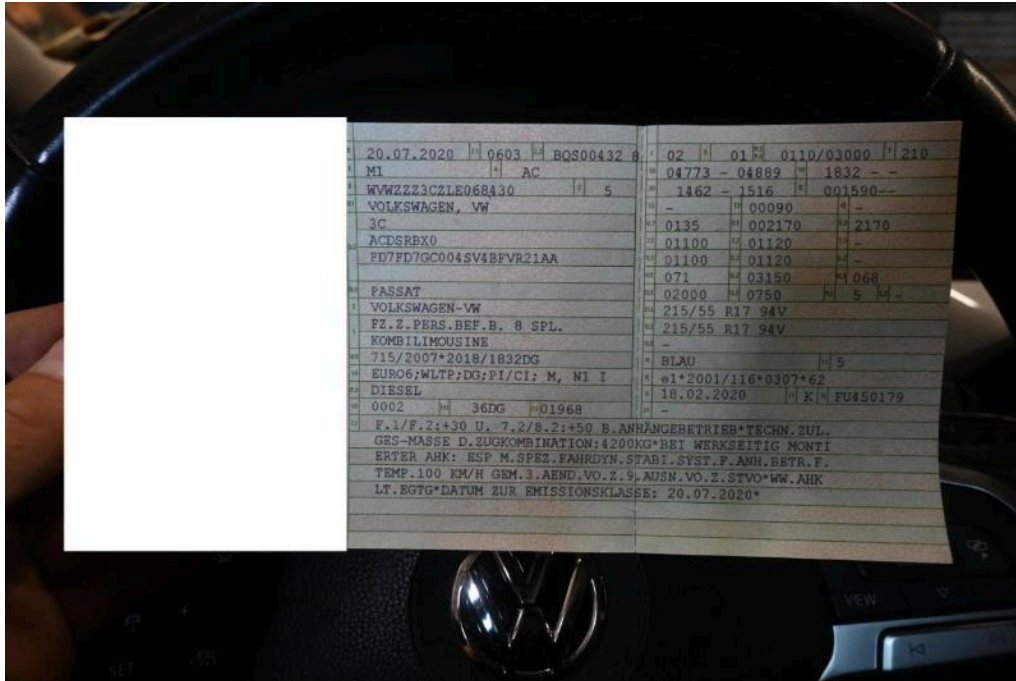 20.07.2020 0603 BQS00432 8
M1 AC
WVWZZZ3CZLE068430 5
VOLKSWAGEN, VW
3C
ACDSRBX0
FD7FD7GC004SV4BFVR21AA
PASSAT
VOLKSWAGEN-VW
FZ.Z.PERS.BEF.B. 8 SPL.
KOMBILIMOUSINE
715/2007*2018/1832DG
EURO6;WLTP;DG;PI/CI; M, N1 I
DIESEL
0002 36DG 01968
02 01 0110/03000 210
04773 - 04889 1832 - -
1462 - 1516 001590--
- 00090 -
0135 002170 2170
01100 01120 -
01100 01120 -
071 03150 068
02000 0750 5 -
215/55 R17 94V
215/55 R17 94V
-
BLAU 5
e1*2001/116*0307*62
18.02.2020 K FU450179
-
F.1/F.2:+30 U. 7.2/8.2:+50 B.ANHÄNGEBETRIEB*TECHN.ZUL.
GES-MASSE D.ZUGKOMBINATION:4200KG*BEI WERKSEITIG MONTI
ERTER AHK: ESP M.SPEZ.FAHRDYN.STABI.SYST.F.ANH.BETR.F.
TEMP.100 KM/H GEM.3.AEND.VO.Z.9.AUSN.VO.Z.STVO*WW.AHK
LT.EGTG*DATUM ZUR EMISSIONSKLASSE: 20.07.2020*
VIEW